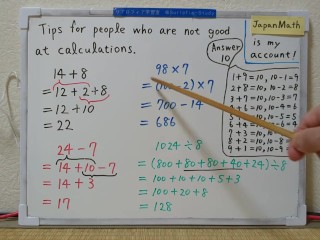 Tips for people who are not good
at calculations.
14 + 8
= 12 + 2 + 8
= 12 + 10
= 22
98 × 7
= (100 - 2) × 7
= 700 - 14
= 686
24 - 7
= 14 + 10 - 7
= 14 + 3
= 17
1024 ÷ 8
= (800 + 80 + 80 + 40 + 24) ÷ 8
= 100 + 10 + 10 + 5 + 3
= 100 + 20 + 8
= 128
JapanMath.
is my
account!
Answer
10
1 + 9 = 10, 10 - 1 = 9
2 + 8 = 10, 10 - 2 = 8
3 + 7 = 10, 10 - 3 = 7
4 + 6 = 10, 10 - 4 = 6
5 + 5 = 10, 10 - 5 = 5
6 + 4 = 10, 10 - 6 = 4
7 + 3 = 10,
8 + 2 = 10,
9 + 1 = 10, 10 - 9 =